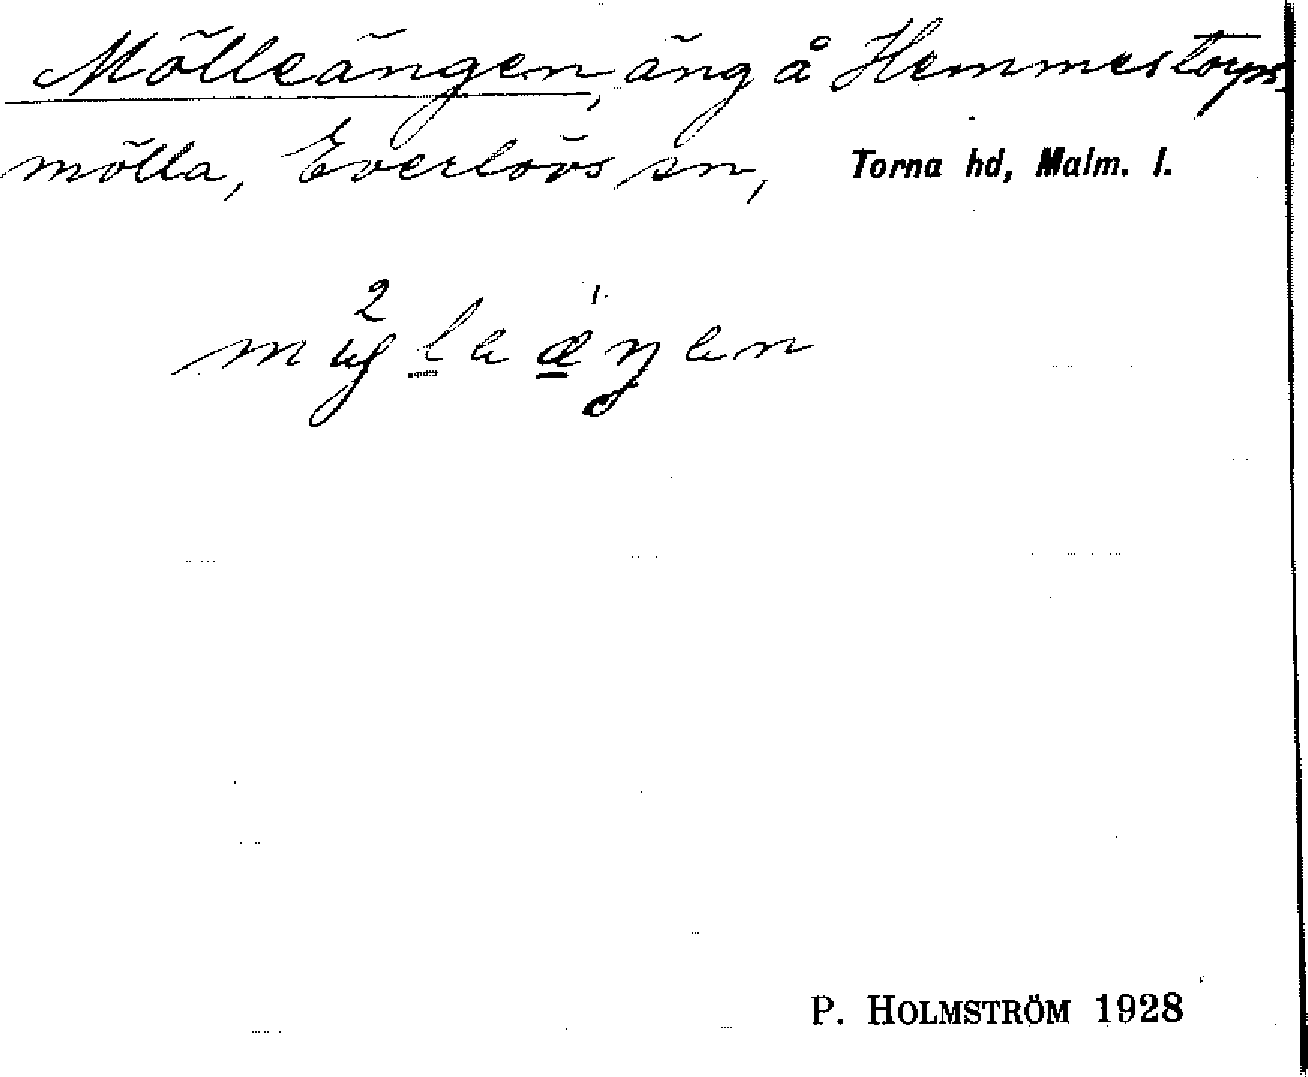 Mölleängen, äng å Hemmestorps-
mölla, Everlövs sn, Torna hd, Malm. l.
P. HOLMSTRÖM 1928